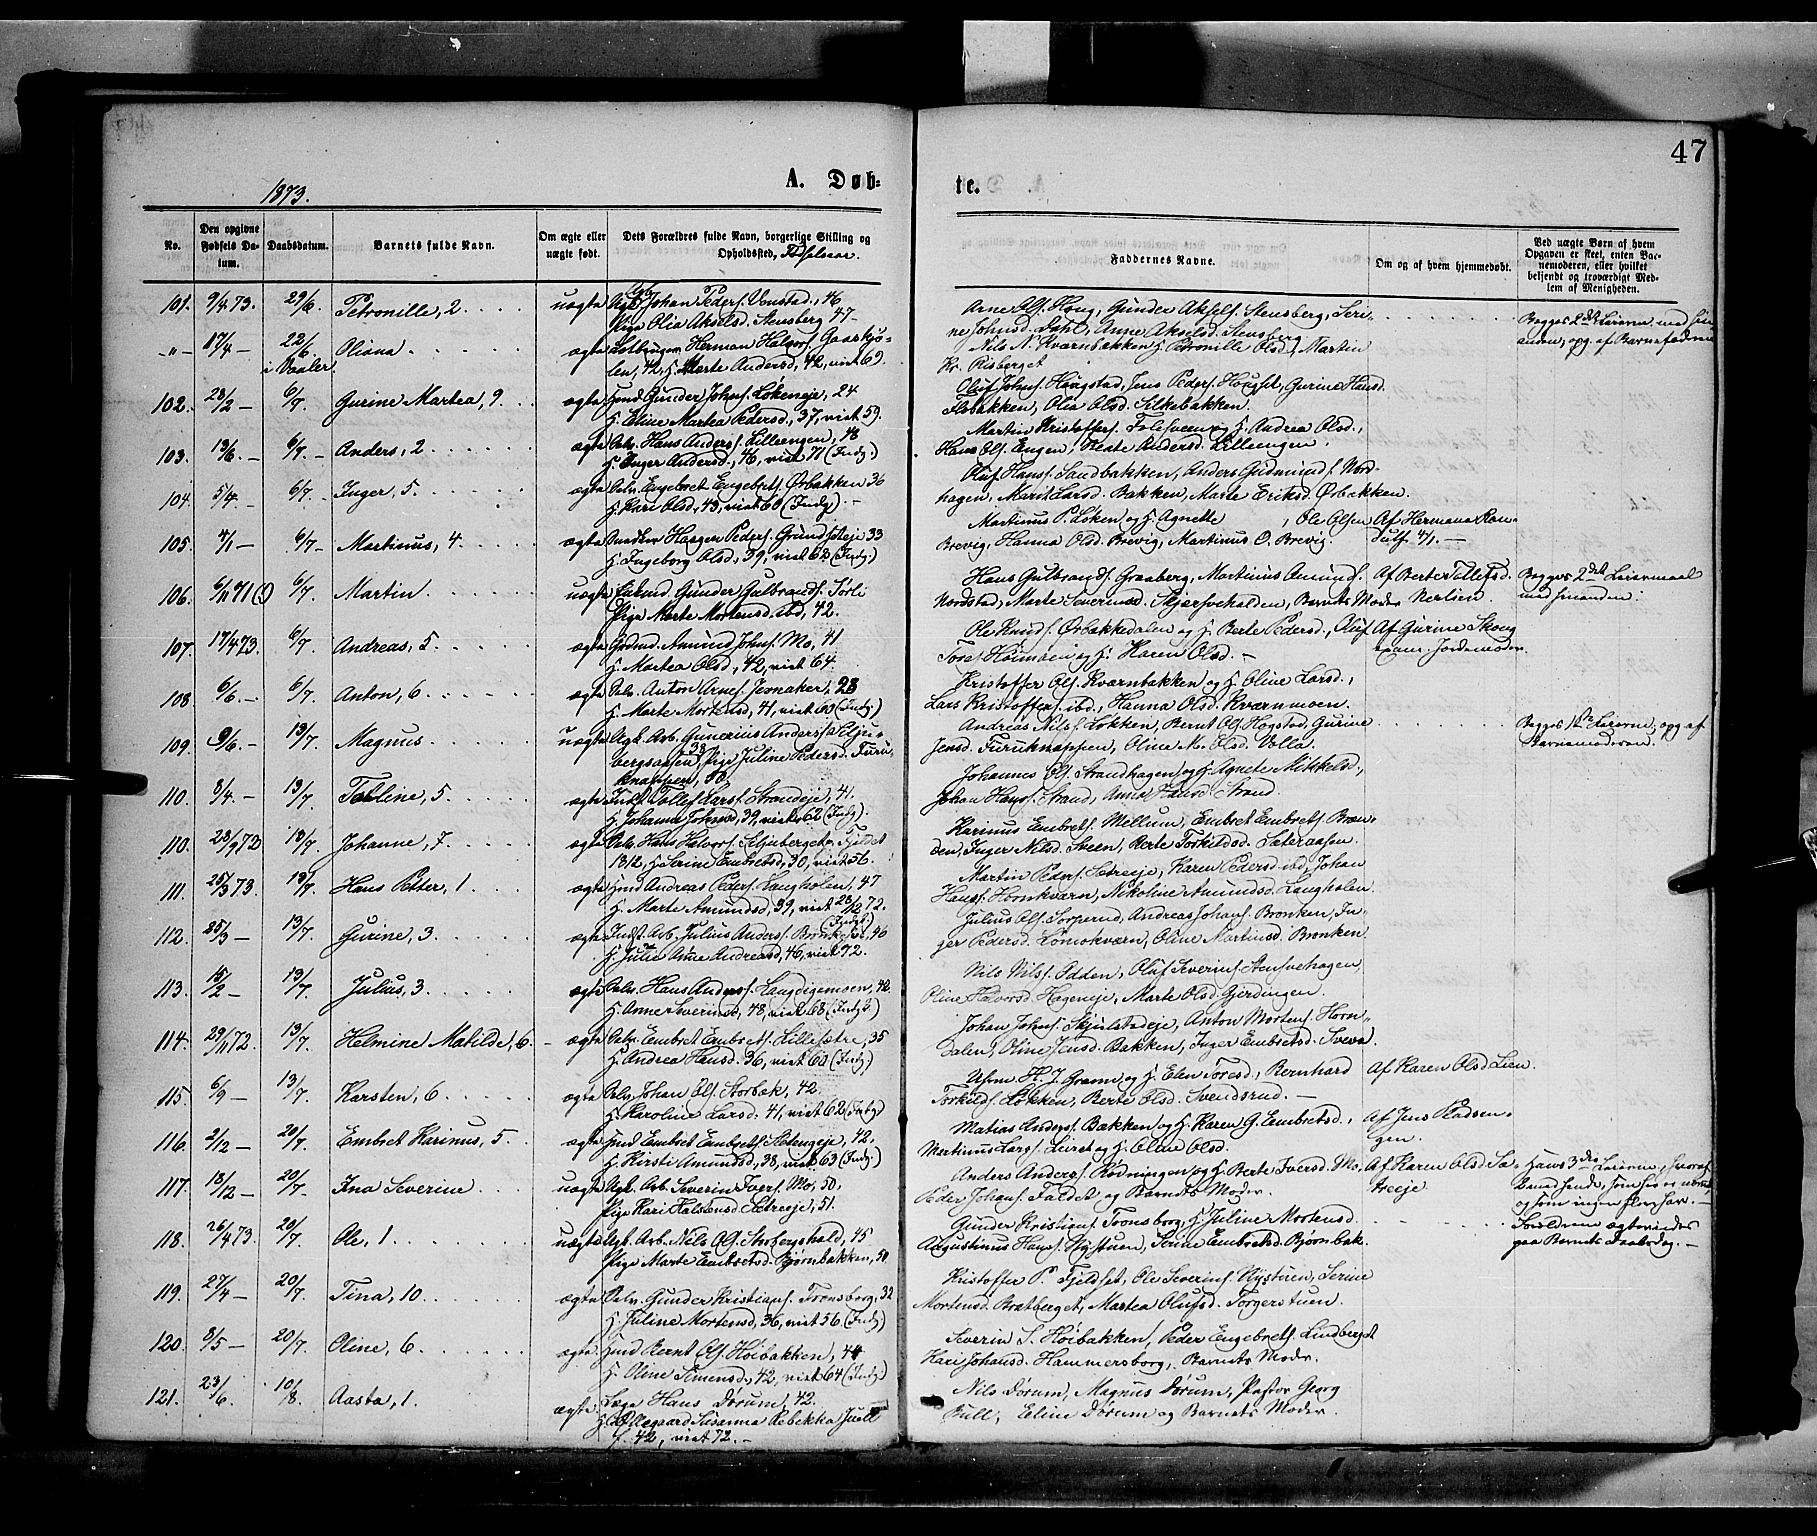 47
1873.
A. Døb-
te.
No.
Den opgivne Fødsels Datum.
Daabsdatum.
Barnets fulde Navn.
Om ægte eller uægte født.
Dets Forældres fulde Navn, borgerlige Stilling og Opholdssted, Fødselsaar
Faddernes Navne.
Om og af hvem hjemmedøbt.
Ved uægte Børn af hvem Opgaven er skeet, enten Barnemoderen, eller hvilket beljendt og troværdigt Medlem af Menigheden.
101. 9/4 73. 29/6 Petronille, 2 uægte Johan Peders. Vonstad, 46
Pige Olia Akselsd. Stensberg 47
Arne Ols. Houg, Gunder Aksels. Stensberg, Seri-
ne Johnsd. Dahl, Anne Akselsd. Stensberg
Begges 2det Leierm. med hin-
anden, opg. af Barnefaderen
„ 17/4 – 22/6 i Vaaler Oliana ægte Herman Halvors. Gaaskjø-
len, 42, H. Marte Andersd., 42, viet 69.
Nils N. Kværnbakken H. Petronille Olsd., Martin
Kr. Risberget
102. 28/2 – 6/7 Gurine Martea, 9. ægte Gunder Johns. Løkeneje, 24
H. Eline Martea Pedersd., 37, viet 59.
Oluf Johns. Haugstad, Jens Peders. Hougset, Gurine Hansd.
Flobakken, Olia Olsd. Silkebakken.
103. 13/6. – 6/7. – Anders, 2 ægte Selv. Hans Anders. Lilleengen, 48
H. Inger Andersd., 46, viet 71 (Indg.)
Martin Kristoffers. H. Andrea Olsd.,
Hans Ols. Engen, Beate Andersd. Lilleengen.
104. 5/4. – 6/7. Inger, 5. ægte Selv. Engebret Engebrets. Ørbakken 36
H. Kari Olsd., 43, viet 60 (Indg.) –
Oluf Hans. Sandbakken, Anders Gudmunds. Nord-
hagen, Marit Larsd. Bakken, Marte Eriksd. Ørbakken.
105. 4/1 – 6/7 – Martinus, 4. ægte Haagen Peders. Grundseteje 33
H. Ingeborg Olsd., 39, viet 62 (Indg.)
Martinus P. Løken og H. Agnette , Ole Olsen
Brevig, Hanna Olsd. Brevig, Martinus O. Brevig.
Af Hermana Ran-
4/1. –
106. 6/11 71 (!) 6/7. Martin. uægte Gunder Gulbrands. Torli
Pige Marte Mortensd. ibd, 42.
Hans Gulbrands. Graaberg, Martinus Amunds.
Nordstad, Marte Severinsd. Skjærsveholden, Barnets Moder
Af Berte Tollefsd.
Nerlien.
Begges 2det Leiermaal
med hinanden.
107. 17/4 73. 6/7. Andreas, 5 ægte Amund Johns. Mo, 41
H. Martea Olsd., 42, viet 64.
Ole Knuds. Ørbækkedalen og H. Berte Pedersd., Oluf
Tores. Høimoen og H. Karen Olsd. –
Af Gurine Skoug
exam. Jordemoder.
108. 6/6. – 6/7. Anton, 6 ægte Selv. Anton Arnes. Jernaker, 28
H. Marte Mortensd., 41, viet 60 (Indg.)
Kristoffer Ols. Kværnbakken og H. Oline Larsd.,
Lars Kristoffers. ibd, Hanna Olsd. Kværnmoen.
109. 9/6. – 13/7. Magnus uægte Ugft. Arb. Gunerius Anders. Kilju-
bergsaasen, 38, Pige Juline Pedersd. Furu-
knappen, 50.
Andreas Nils. Løkken, Bernt Ols. Hogstad, Gurine
Jensd. Furuknappen, Oline M. Olsd. Volla.
Begges 1ste Leierm., opg. af
Barnemoderen.
110. 8/4. – 13/7. Tolline, 5 ægte Inds. Tollef Lars. Strandeje, 41.
H. Johanna Johnsd., 39, viet 62 (Indg.)
Johannes Ols. Strandhagen og H. Agnete Mikkelsd.,
Johan Hans. Strand, Anna Hansd. Strand.
110. 23/9 72 13/7. Johanne, 7. ægte Selv. Hans Halvors. Kiljuberget n. Fjeldet
1812, H. Serine Embretsd., 30, viet 56.
Karinus Embrets. Mellum, Embret Embrets. Bræn-
den, Inger Nilsd. Steen, Berte Torkildsd. Sateraasen.
111. 25/3 73. 13/7. Hans Petter, 1 ægte Hmd. Andreas Peders. Langholen, 47
H. Marte Amundsd., 39, viet 28/12 72. (Indgt.)
Martin Peders. Setreeje, Karen Pedersd. ibd., Johan
Hans. Hornkværn, Nikoline Amundsd. Langholen.
112. 25/3 – 13/7. Gurine, 3. ægte Indst. Arb. Julius Anders. Bronkeeje, 46
H. Julie Anne Andreasd., 46, viet 72.
Julius Ols. Sorperud, Andreas Johans. Bronken, In-
ger Pedersd. Lømokværn, Oline Martinsd. Bronken
113. 15/2 – 13/7. Julius, 3. ægte Selv. Hans Anders. Langdigemoen, 42.
H. Anne Severinsd., 48, viet 68 (Indgt.)
Nils Nils. Odden, Oluf Severins. Stensvehagen,
Oline Halvorsd. Hageneje, Marte Olsd. Gjerdingen.
114. 29/11 72. 13/7. Helmine Matilde, 6. – ægte Selv. Embret Embrets. Lillesætre, 35
H. Andrea Hansd. 36, viet 60 (Indg.)
Johan Johns. Skjulstadeje, Anton Mortens. Horn-
dalen, Oline Jensd. Bakken, Inger Embretsd. Sveva.
115. 6/9 – 13/7. Karsten, 6 ægte Selv. Johan Ols. Storbæk, 42.
H. Karoline Larsd. 41, viet 62 (Indg.)
H. J. Gramm og H. Elen Toresd., Bernhard
Torkilds. Løkken, Berte Olsd. Svendsrud. –
Af Karen Olsd. Lien
116. 2/12 – 20/7. Embret Karinus, 5. ægte Hmd. Embret Embrets. Stetengeje, 42,
H. Kirsti Amundsd., 38, viet 63 (Indg.)
Matias Anders. Bakken og H. Karen G. Embretsd.,
Martinus Lars. Leiret og H. Oline Olsd.
Af Jens Pladsen-
gen.
117. 18/12 – 20/7. Ina Severine uægte Ugft. Arb. Severin Ivers. Mo, 50,
Pige Kari Halstensd. Setreeje, 51.
Anders Anders. Rødningen og H. Berte Iversd. Mo,
Peder Johans. Faldet og Barnets Moder.
Af Karen Olsd. Sæ-
treeje
Hans 3die Leierm.,
og som ingen flere har. –
118. 26/4 73. 20/7. Ole, 1 uægte Ugft. Arb. Nils Ols. Storbergshold, 45
Pige Marte Embretsd. Bjørnbakken, 50
Gunder Kristians. Tronsborg, H. Juline Mortensd.
Augustinus Hans. Nystuen, Serine Embretsd. Bjørnbak.
Forældrene ægteviedes
paa Barnets Daabsdag. –
119. 27/4 – 20/7. Tina, 10 ægte Selv. Gunder Kristians. Tronsborg, 32
H. Juline Mortensd., 36, viet 56 (Indg.)
Kristoffer P. Fjeldset, Ole Severins. Nystuen, Serine
Mortensd. Bratberget, Martea Olufsd. Torgerstuen.
120. 8/5 – 20/7. Oline, 6 ægte Hmd. Bernt Ols. Høibakken, 44
H. Oline Simensd., 42, viet 64 (Indg.)
Severin S. Høibakken, Peder Engebrets. Lindberget
Kari Johansd. Hammersborg, Barnets Moder.
121. 23/6 10/8. Aasta, 1. ægte Læge Hans Dørum, 42.
H. Ollegaard Susanna Rebekka Juell
f. 42, viet 72. –
Nils Dørum, Magnus Dørum, Pastor Georg
Bull, Eline Dørum og Barnets Moder.